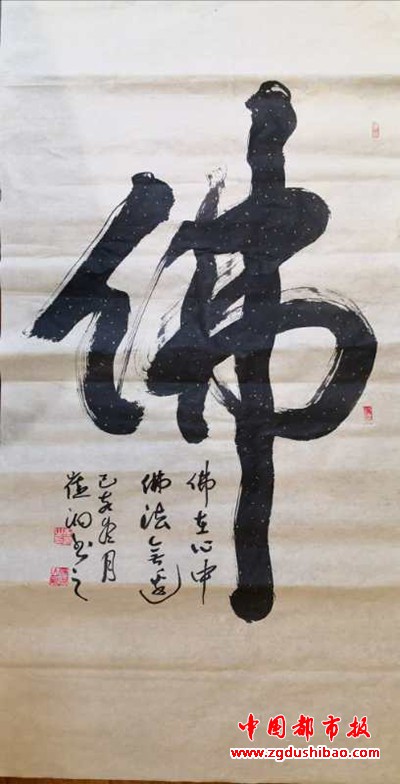 佛
佛在心中
佛法無邊
己亥年月
崔洵书之
中国都市报
www.zgdushibao.com